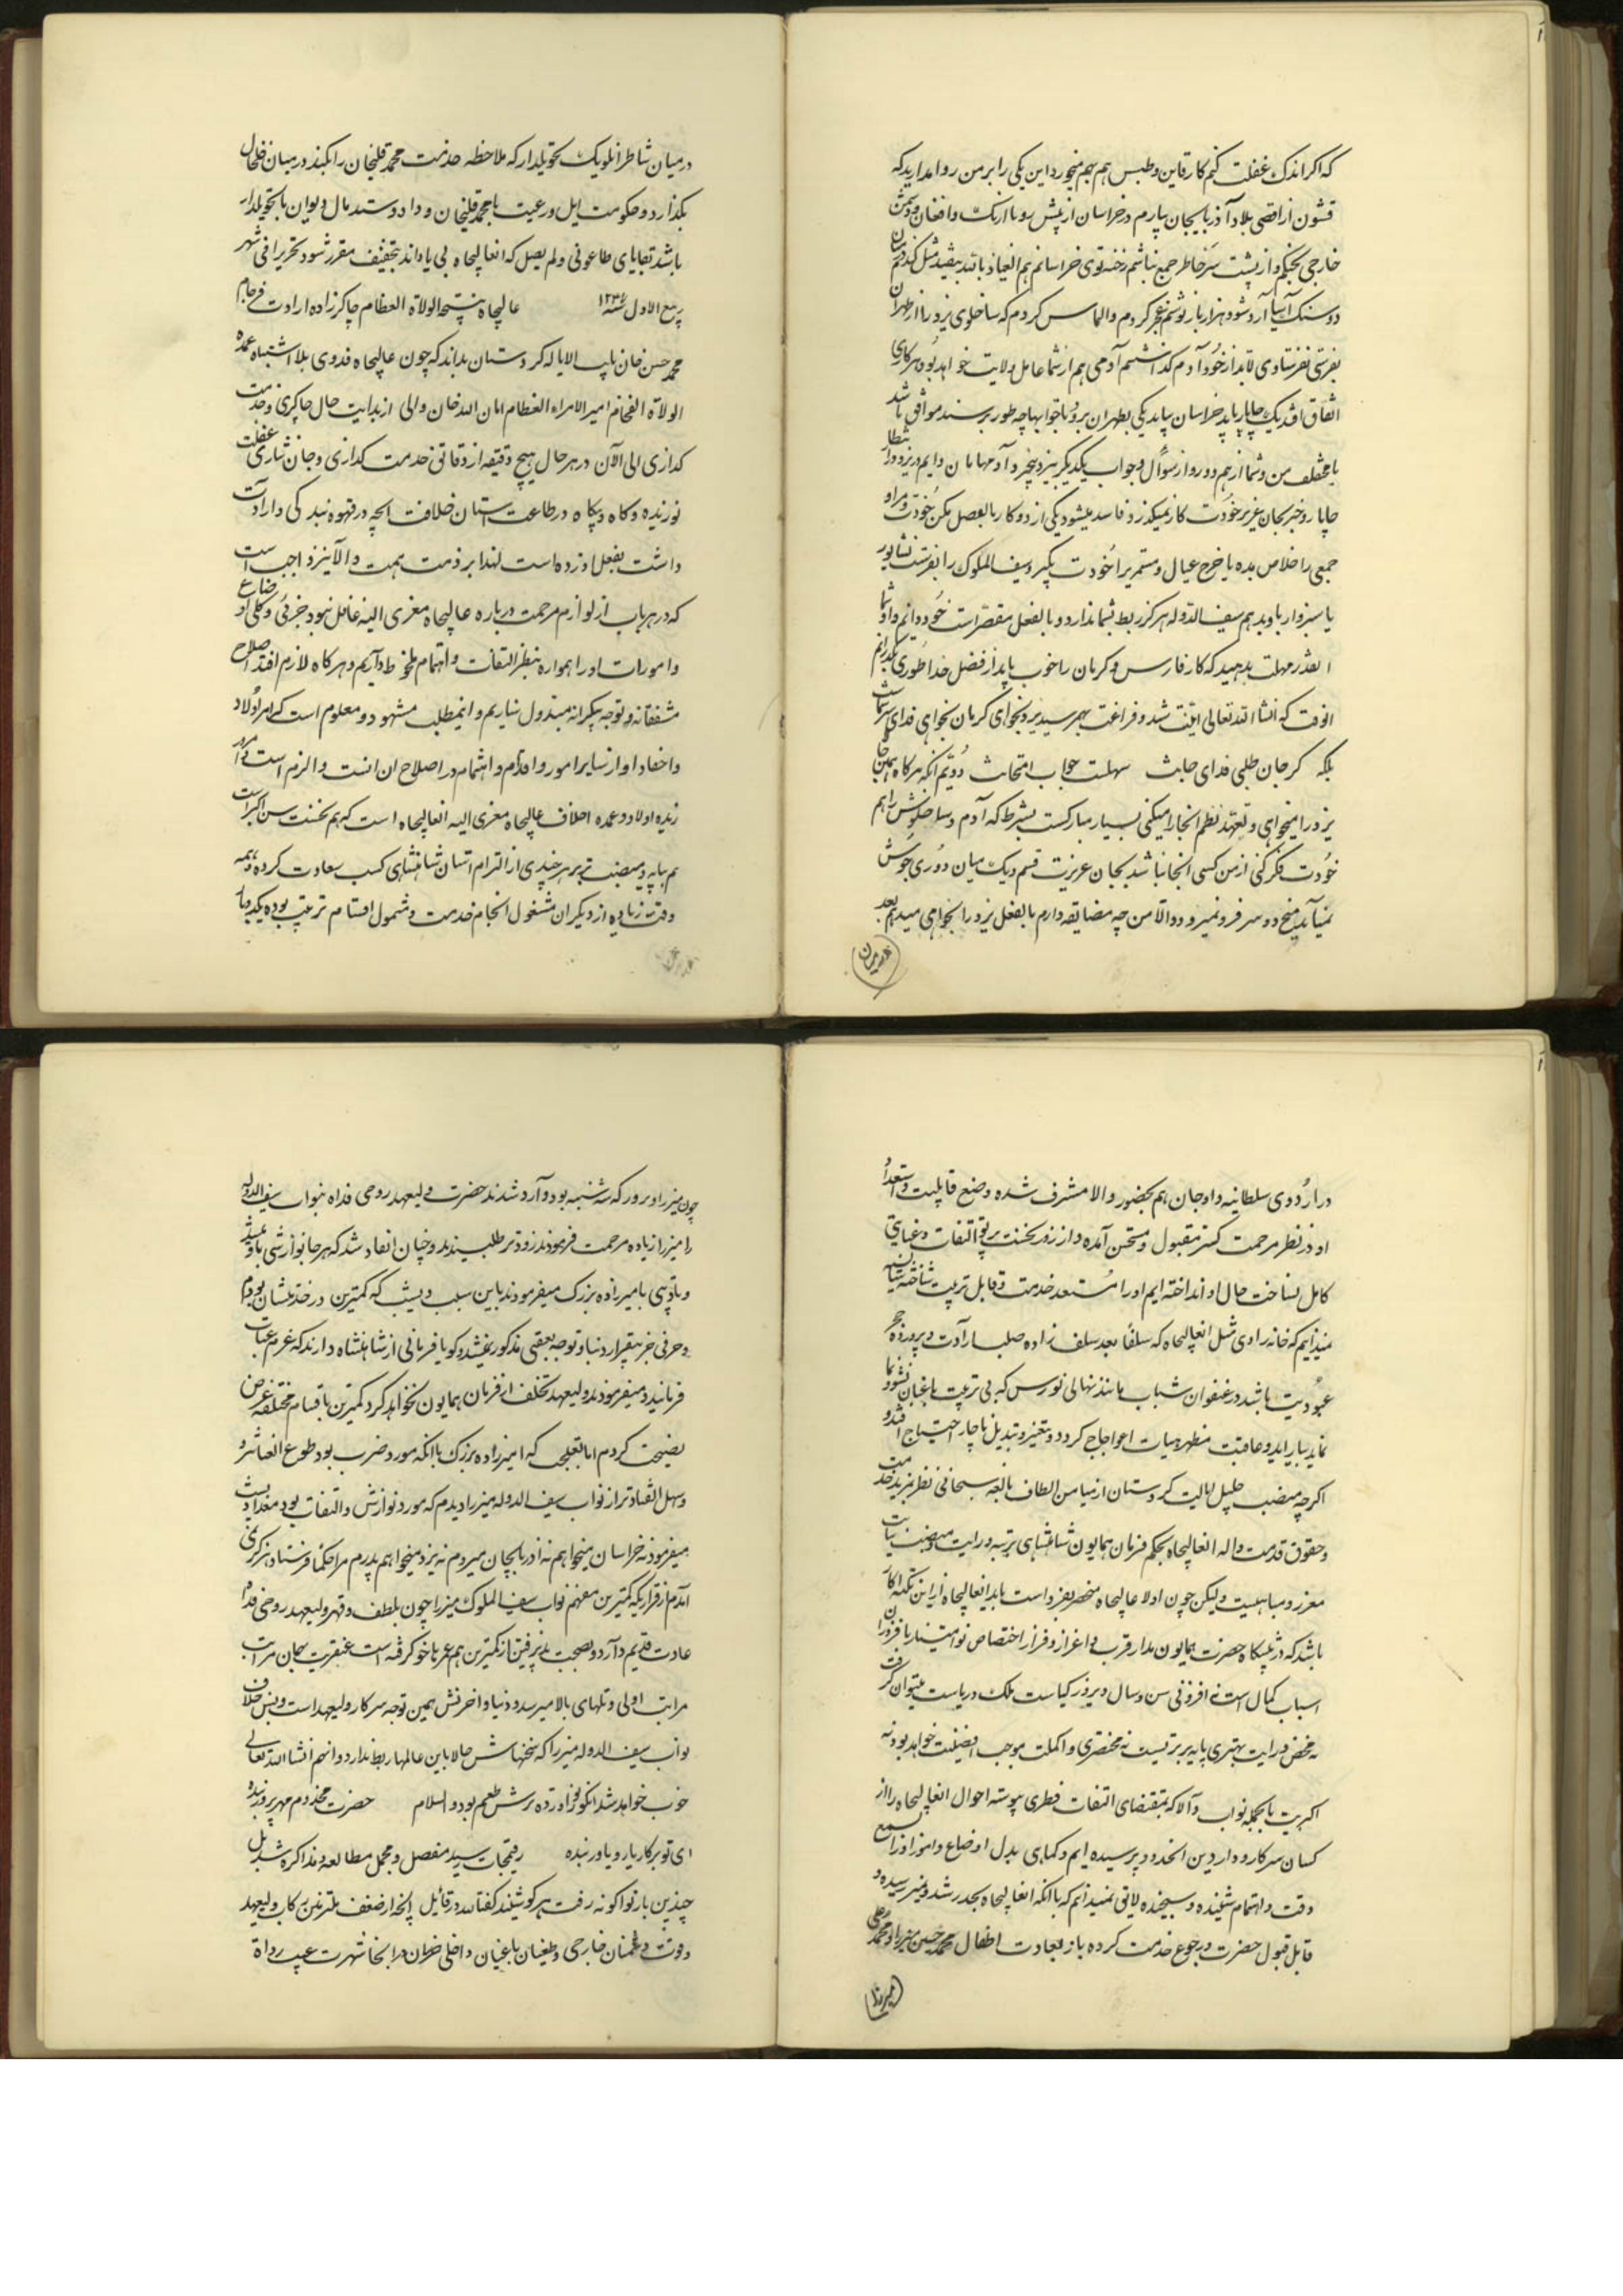 که اگر اندک غفلت کنم کار قاین و طبس هم بهم میخورد این یکی را بر من روا مدارید که
قشون از اقصی بلاد آذربایجان بیارم در خراسان از پیش رو با ازبک و افغان و دشمن
خارجی بجنگم و از پشت سر خاطر جمع نباشم رخنه توی خراسانم هم العیاذ بالله بیفتد مثل گندم میان
دو سنک آسیا آرد شود هزار بار نوشتم عجز کردم و التماس کردم که ساخلوی یزد را از طهران
بفرست نفرستادی لابد از خود آدم گذاشتم آدمی هم از شما عامل ولایت خواهد بود هر کاری
اتفاق افتد یک چاپار باید خراسان بیاید یکی بطهران برود تا جوابها چه طور برسند موافق باشد
یا مختلف من و شما از هم دور و از سؤال و جواب یکدیگر بی خبر و آدمهامان دایم در یزد و انتظار
چاپار و خبر بجان عزیز خودت کار نمیگذرد فاسد میشود یکی از دو کار بالفعل بکن خودت و مرا و
جمعی را خلاص بده یا خرج عیال و مستمری را خودت بگیر و سیف الملوک را بفرست نشابور
یا سبزوار باو بدهم سیف الدوله هرگز ربط بشما ندارد و بالفعل مقصر است خود دانم و او شما
اینقدر مهلت بدهید که کار فارس و کرمان را خوب باید از فضل خدا طوری بگذرانم
انوقت که انشاالله تعالی امنیت شد و فراغت بهم رسید یزد بخواهی کرمان بخواهی فدای سرشماست
بلکه گر جان طلبی فدای جانت سهلست جواب امتحانت دویم آنکه هرگاه همین جا
یزد را میخواهی و تعهد نظم انجا را میکنی بسیار مبارکست بشرط که آدم و ساخلوش را هم
خودت فکر کنی از من کسی انجا نباشد بجان عزیزت قسم دیک میان دوری جوش
نمیآید میخ دو سر فرو نمیرود والا من چه مضایقه دارم بالفعل یزد را بخواهی میدهم بعد
در میان شاطرانلو یک تحویلدار که ملاحظه خدمت محمد قلیخان را بکند در میان خلخال
بگذارد و حکومت ایل و رعیت با محمد قلیخان و داد و ستد مال دیوان با تحویلدار
باشد بقایای طاعونی و لم یصل که انعالیجاه بی پا داند بتخفیف مقرر شود تحریرا فی شهر
ربیع الاول سنه ۱۲۳۷ عالیجاه نتیجة الولاة العظام چاکرزاده ارادت فرجام
محمد حسن خان نایب الایاله کردستان بداند که چون عالیجاه فدوی بلا اشتباه عمدة
الولاة الفخام امیر الامراء العظام امان الله خان والی از بدایت حال چاکری و خدمت
گذاری الی الآن در هر حال هیچ دقیقه از دقایق خدمت گذاری و جان نثاری غفلت
نورزیده و گاه و بیگاه در طاعت استان خلافت انچه در قوه بندگی و ارادت
داشت بفعل اورده است لهذا بر ذمت همت والا نیز واجب است
که در هر باب از لوازم مرحمت درباره عالیجاه معزی الیه غافل نبود جزئی و کلی اوضاع
و امورات او را همواره بنظر التفات و اهتمام ملحوظ داریم و هر گاه لازم افتد اصلاح
مشفقانه و توجه بیکرانه مبذول سازیم و اینمطلب مشهود و معلوم است که امر اولاد
و احفاد او از سایر امور و اقدم و اهتمام در اصلاح ان انسب و الزم است و امروز
زبده اولاد و عمده اخلاف عالیجاه معزی الیه انعالیجاه است که هم نخست سن اکبر است
هم بپایه و منصب برتر هر چندی از التزام استان شاهنشاهی کسب سعادت کرده و همه
وقت زیاده از دیگران مشغول انجام خدمت و مشمول اقسام تربیت بوده یکدوبار
در اردوی سلطانیه و اوجان هم بحضور والا مشرف شده وضع قابلیت و استعداد
او در نظر مرحمت گستر مقبول و مستحسن آمده و از روز نخست پرتو التفات و عنایتی
کامل بساخت حال او انداخته ایم او را مستعد خدمت و قابل تربیت شناخته شایسته
نمیدانیم که خانه زادی مثل انعالیجاه که سلفا بعد سلف زاده صلب ارادت و پرورده حجر
عبودیت باشد در عنفوان شباب مانند نهالی نورس که بی تربیت باغبان نشو و نما
نماید بیاراید و عاقبت مظهر هیات اعوجاج گردد و بتغییر و تبدیل ناچار احتیاج افتد و
اگرچه منصب جلیل ایالت کردستان از میامن الطاف بالغه سبحانی نظر بمزید خدمت
و حقوق قدمت والد انعالیجاه بحکم فرمان همایون شاهنشاهی برتبه و رایت و منصب نیابت
معزز و مباهیست ولیکن چون اولاد عالیجاه منحصر بفرد است باید انعالیجاه ازاین نکته اگاه
باشد که در پیشگاه حضرت همایون مدار قرب و اعزاز و فراز اختصاص نو امتیاز با فزونی ان
اسباب کمال است نه افزونی سن و سال و بزور کیاست ملک و ریاست میتوان گرفت
نه محض درایت بهتری پایه برتریست نه محض تری و اکملت موجب افضلیت خواهد بود نه
اکبریت بالجمله نواب والا که بمقتضای التفات فطری پیوسته احوال انعالیجاه را از
کسان سرکار و واردین انحدود پرسیده ایم و کماهی بدل اوضاع و امور او را بسمع
دقت و اهتمام شنیده و سنجیده لایق نمیدانیم که با انکه انعالیجاه بحد رشد و تمیز رسیده و
قابل قبول حضرت و رجوع خدمت کرده باز بعادت اطفال محمد حسین میرزا و محمد علی
میرزا
چون میرزا و روز که شنبه بود وارد شدند حضرت ولیعهد روحی فداه نواب سیف الدوله
را میرزا زیاده مرحمت فرمودند زود تر طلبیدند و چنان انقاد شد که هر جا نوازشی باو میشد
و بازپرسی بامیرزاده بزرک میفرمودند باین سبب دیشب که کمترین در خدمتشان بودم
و حرفی جز بیقراری دنیا و توجه بعقبی مذکور نمیشد و گویا فرمانی از شاهنشاه دارند که عزم عتبات
فرمایند و میفرمودند ولیعهد تخلف از فرمان همایون نخواهد کرد کمترین باقسام مختلفه عرض
نصیحت کردم اما بتعجب که امیرزاده بزرک با انکه مورد ضرب بود طوع انعاشر و
و سهل انقیادتر از نواب سیف الدوله میرزا دیدم که مورد نوازش و التفات بود معذلک دیشب
میفرمودند نه خراسان میخواهم نه آذربایجان میروم نه یزد میخواهم پدرم مرا حکما فرستاد بنوکری
آمدم از قراریکه کمترین میفهم نواب سیف الملوک میرزا چون بلطف و قهر ولیعهد روحی فداه
عادت قدیم دارد و نصیحت پذیرفتن از کمترین هم عمر با خو گرفته است عنقریب بهمان مراتب
مراتب اولی و تلهای بالا میرسد و دنیا و آخرتش همین توجه سرکار ولیعهد است و بس خلاف
نواب سیف الدوله میرزا که سخنهاش حالا باین عالمها ربط ندارد و انهم انشاالله تعالی
خوب خواهد شد انکو غوره ترش طعم بود و السلام حضرت مخدوم مهربرور بنده
ای تو بهر کار یار و یاور بنده رقیمجات رسید مفصل و مجمل مطالعه و مذاکره شد بل
چندین بار تو اگو نه رفت هر گوشیدند گفتا سد در قائیل
و قوت دشمنان خارجی و طغیان یاغیان داخلی خراسان مرا بخا شهرت عیب